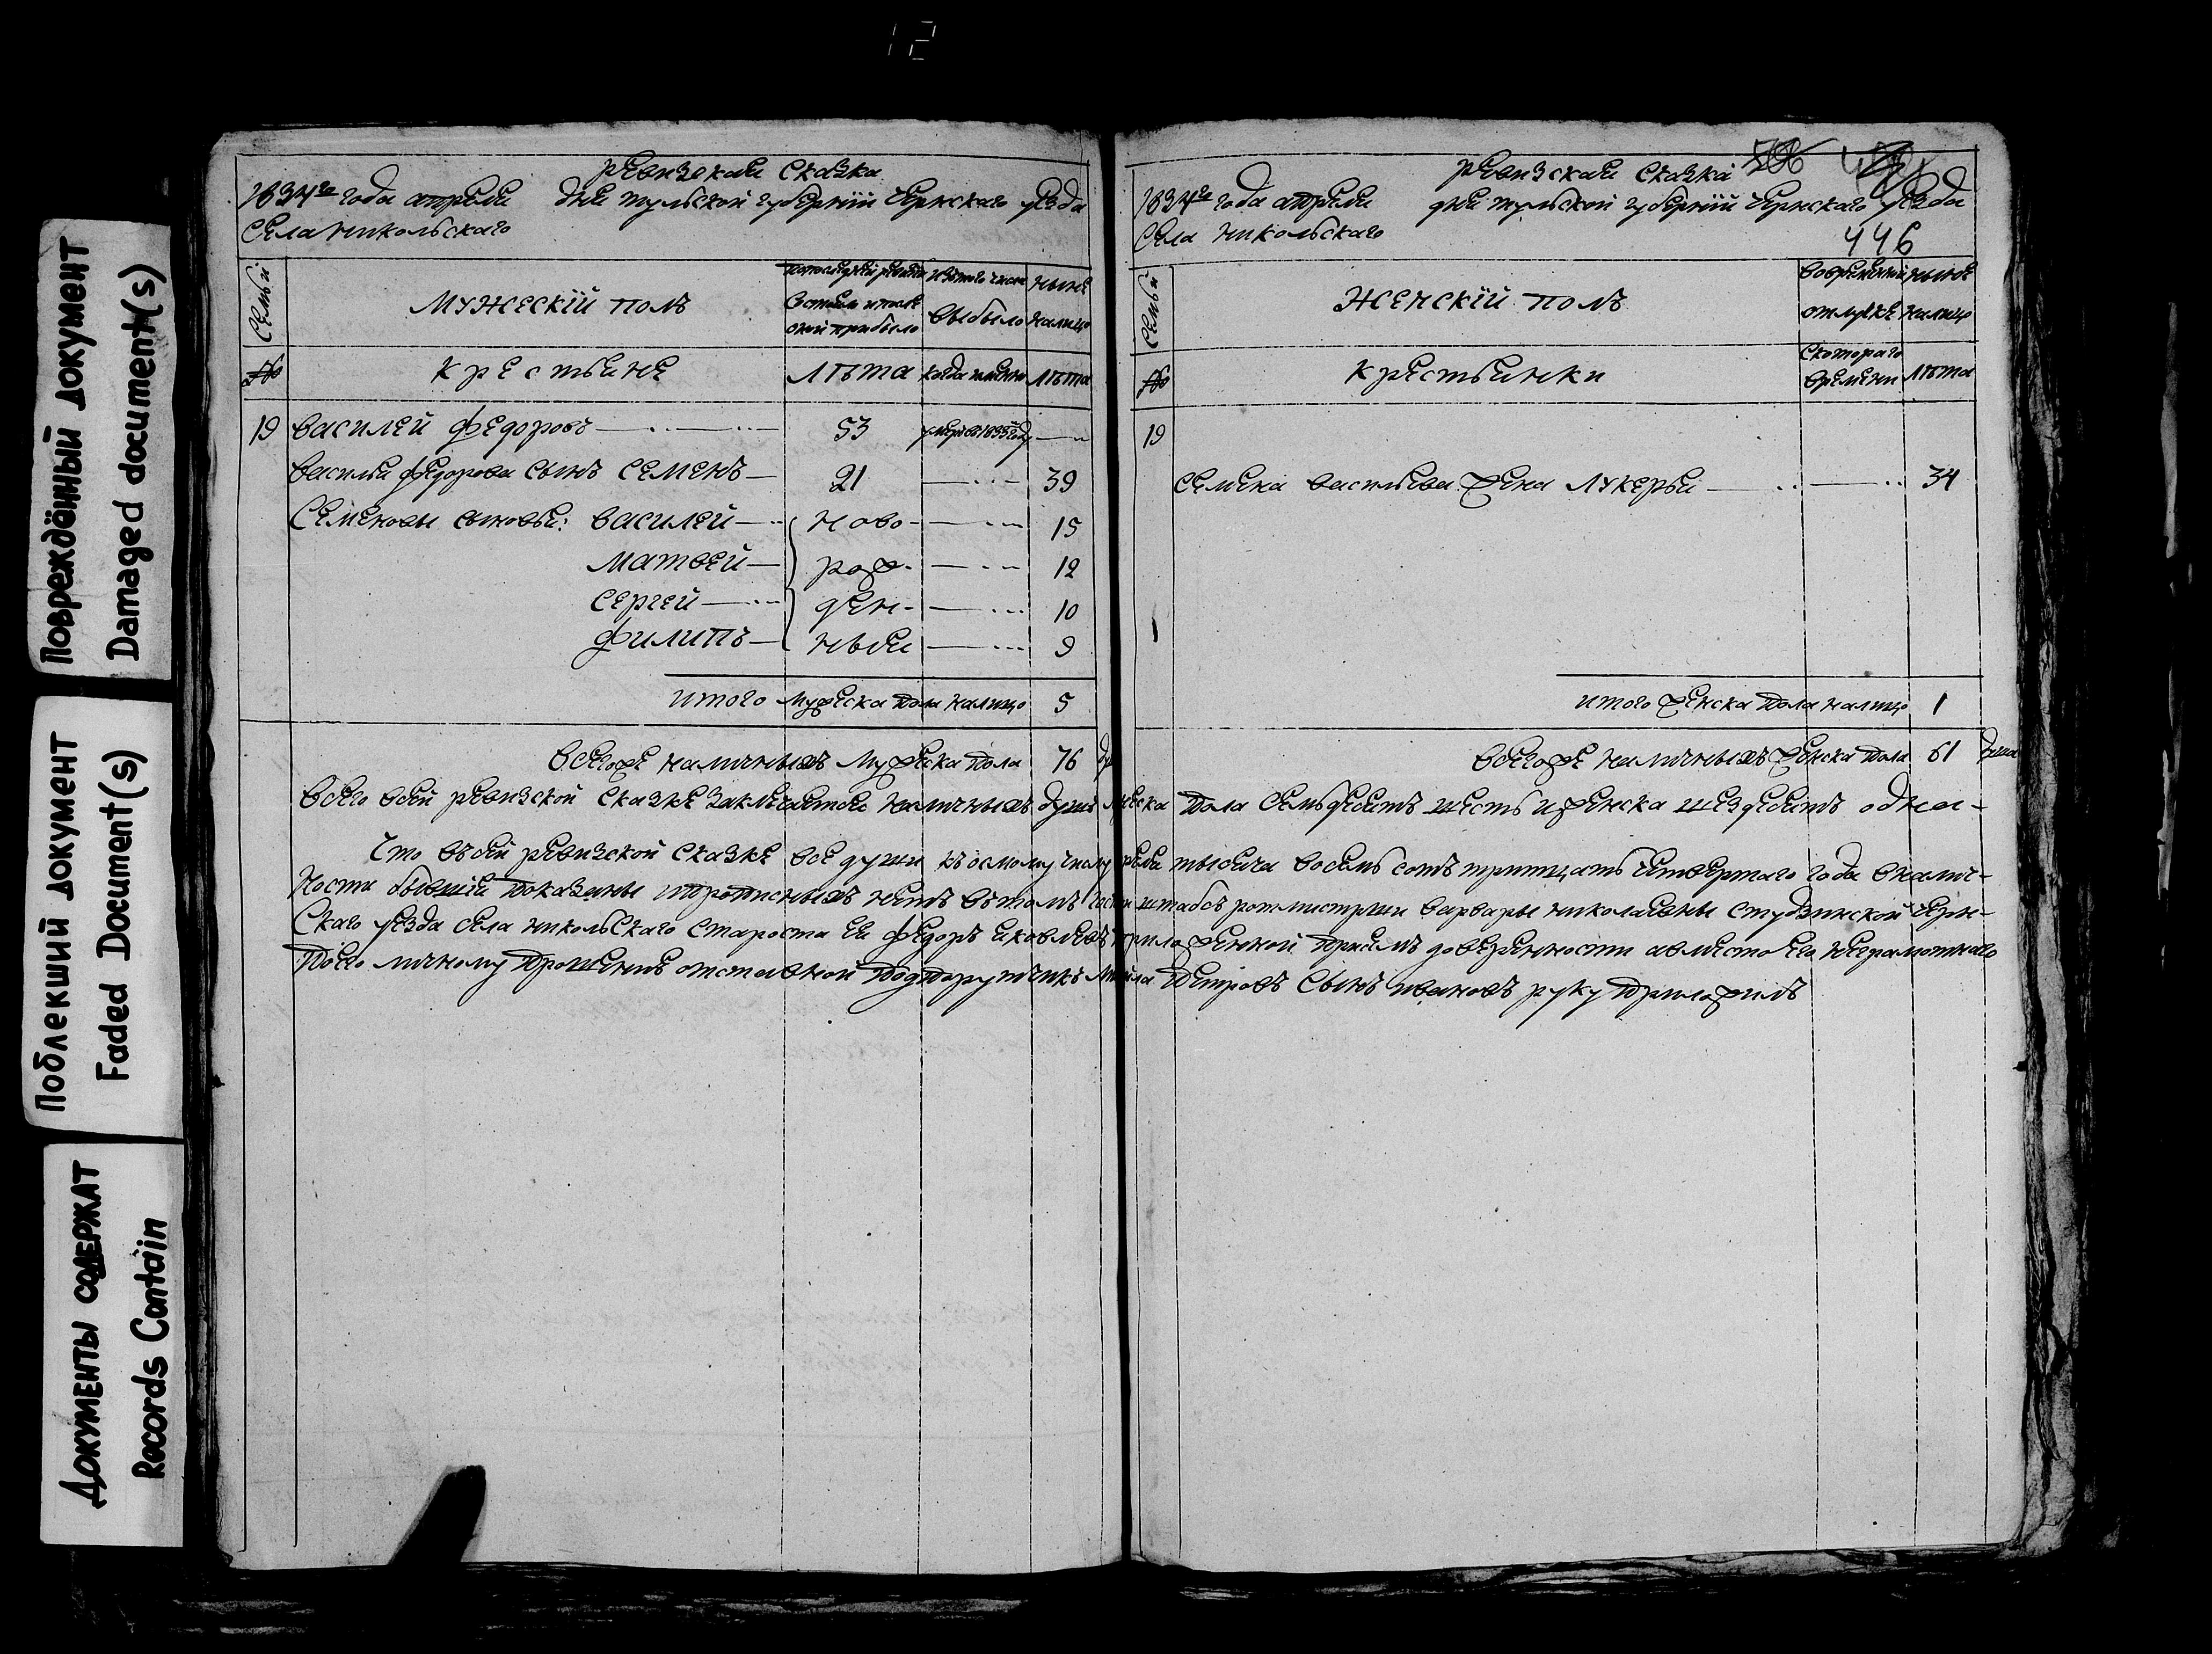 12
Повреждённый документ
Damaged document(s)
Поблекший документ
Faded Document(s)
Документы содержат
Records Contain
ревизская сказка
1834го года апреля дня тульской губернiи Чернскаго уезда
села никольскаго
Семьи
Мужескiй полъ
по последней ревизiи состояло и после оной прибыло
изътого числа выбыло
ныне налицо
№
крестьяне
лѣта
когда именно
лѣта
19 василей федоровъ 53 умеръ в 1833 году
василья федорова сынъ семенъ 21 39
Семеновы сыновья: василей ново- 15
матвей рож- 12
сергей ден- 10
филипъ ныя 9
итого мужеска пола налицо 5
всегоже наличныхъ мужеска пола 76
ревизская сказка
1834го года апреля дня тульской губернiи Чернскаго уезда
села никольскаго
446
Семьи
Женскiй полъ
вовременной отлучке
ныне налицо
№
крестьянки
скотораго времени
лѣта
19
семена васильева жена лукерья 34
итого женска пола налицо 1
всегоже наличныхъ женска пола 61 душа
всего всей ревизской сказке заключается наличныхъ душъ мужеска пола семьдесятъ шесть и женска шездесятъ одна
Что въсей ревизской сказке все души къ осмому числу апреля тысяча восемь сотъ тритцать четвертаго года вналич-
ности бывшiя показаны и прописныхъ нетъ вътомъ штабсъ ротмистрши варвары николаевны студзинской черн-
скаго уезда села никольскаго староста ея федоръ яковлевъ приложенной присемъ доверенности авместо его неграмотнаго
поего личному прошенiю отставной подпоручикъ петровъ сынъ ивановъ руку приложилъ